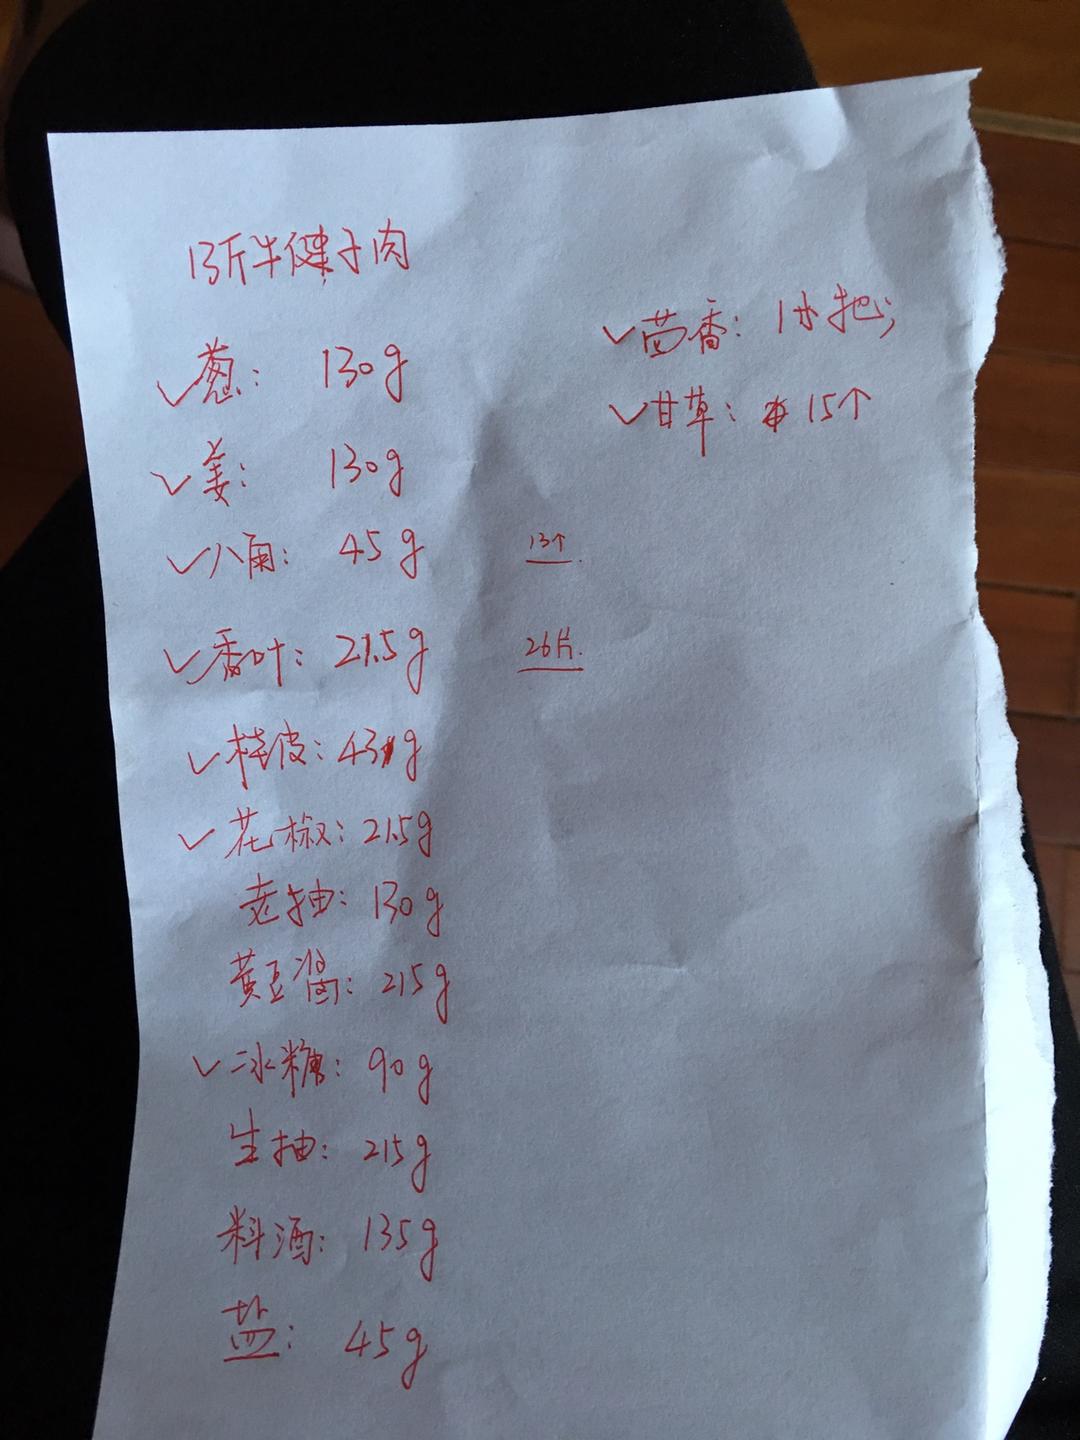 13斤牛健子肉
✓葱: 130g
✓姜: 130g
✓八角: 45g 13个
✓香叶: 21.5g 26片.
✓桂皮: 43g
✓花椒: 21.5g
老抽: 130g
黄豆酱: 215g
✓冰糖: 90g
生抽: 215g
料酒: 135g
盐: 45g
✓茴香: 1小把;
✓甘草: 15个